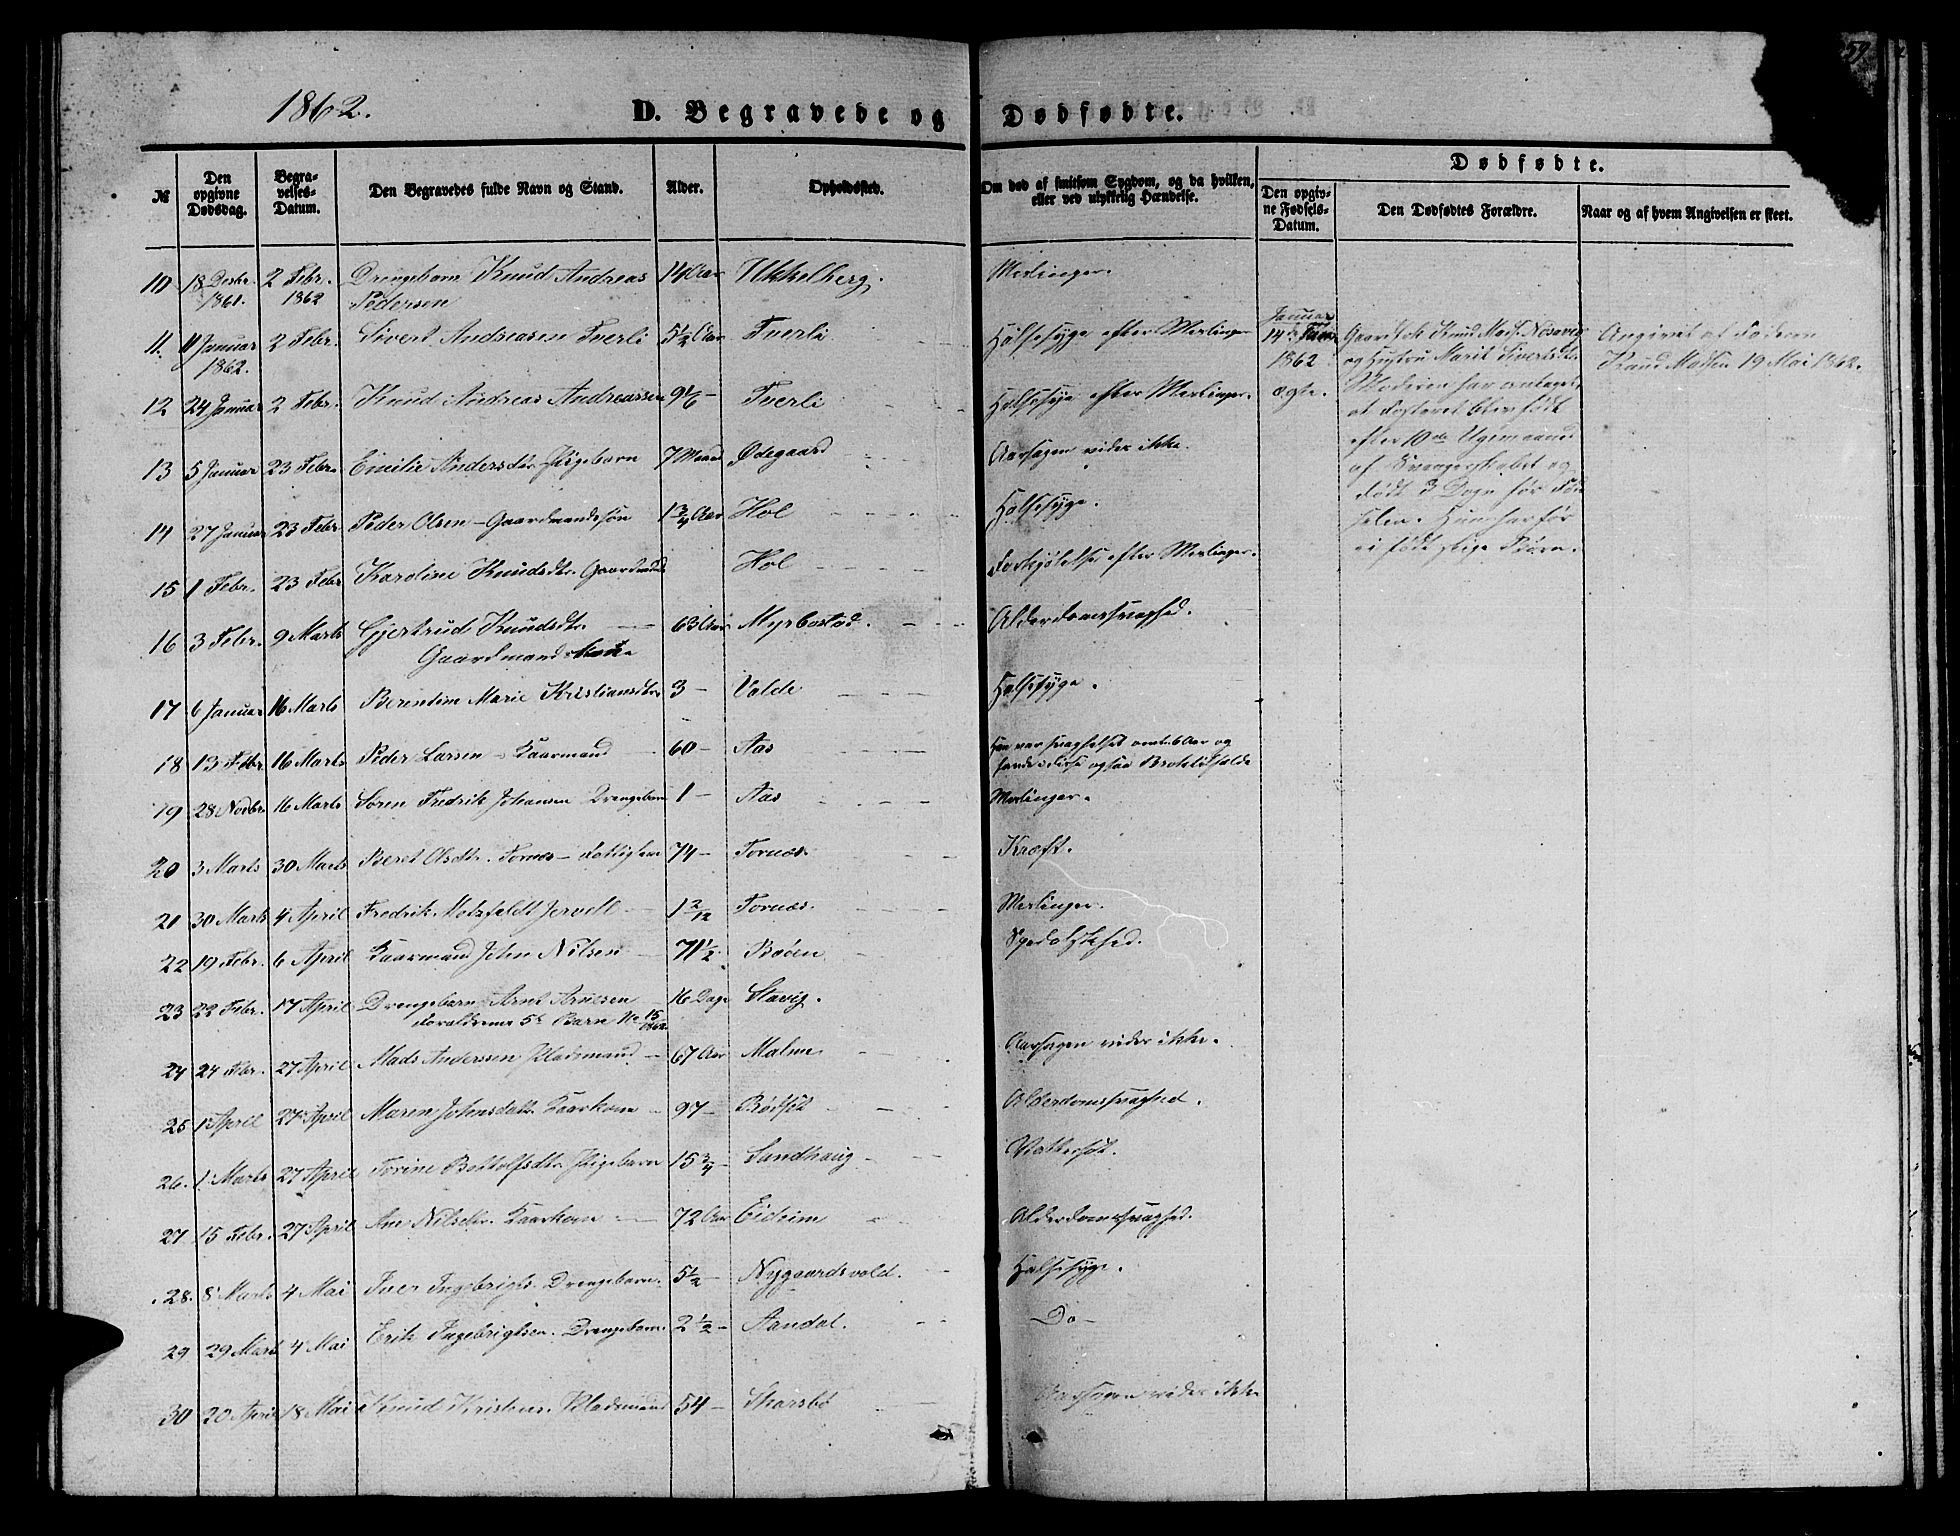 59
1862. D. Begravede og Dødfødte.
№
Den opgivne Dødsdag.
Begravelses-Datum.
Den Begravedes fulde Navn og Stand.
Alder.
Opholdssted.
Om død af smitsom Sygdom, og da hvilken, eller ved ulykkelig Hændelse.
Dødfødte.
Den opgivne Fødsels-Datum.
Den Dødfødtes Forældre.
Naar og af hvem Angivelsen er skeet.
10 18 Decbr. 1861. 2 Febr. 1862 Drengebarn Knud Andreas Pedersen 14 Aar Ukkelberg. Meslinger.
11. 11 Januar 1862. 2 Febr. Sivert Andreasen Tverli 5½ Aar Tverli Halssyge efter Meslinger
12 24 Januar 2 Febr. Knud Andreas Andreassen 9 1/6 - Tverli Halssyge efter Meslinger.
13 5 Januar 23 Febr. Emilie Andersdtr. Pigebarn 7 Maand Ødegaard Aarsagen vides ikke.
14 27 Januar 23 Febr Peder Olsen - Gaardmandssøn 1¾ Aar Hol Halssyge.
15 1 Febr. 23 Febr Karoline Knudsdtr. Hol Forkjølelse efter Meslinger.
16 3 Febr. 9 Marts Gjertrud Knudsdtr. Gaardmands 63 Aar Myrbostad. Alderdomssvaghed.
17 6 Januar 16 Marts Berentine Marie Kristiansdtr. 3 - Valde Halssyge.
18 13 Febr 16 Marts Peder Larsen - Kaarmand 60 - Aas
Han var svageligt omtr. 6 Aar og
havde og saa
19 28 Novbr 16 Marts Søren Fredrik Johansen Drengebarn 1 - Aas Meslinger.
20 3 Marts 30 Marts Beret Olsdtr. Tornæs - Fattiglem 74 - Tornæs. Kræft.
21 30 Marts 4 April Fredrik Motzfeldt Jervell 1 2/12 Tornæs. Meslinger.
22 19 Febr. 6 April Kaarmand John Nilsen 71½ Bøen Spedalskhed.
23 22 Febr. 17 April Drengebarn Arnt Arnesen Forældrenes 5te Barn No 15 1862. 16 Dage Stavig.
24 24 Febr. 27 April Mads Andersen Pladsmand 67 Aar Malme Aarsagen vides ikke.
25 1 April 27 April Maren Johnsdatt. Kaarkone 97 - Alderdomssvaghed.
26. 1 Marts 27 April Torine Bottolfsdtr. Pigebarn 15¾ - Sandhaug Vattersot.
27 15 Febr. 27 April Ane Nilsdtr. Kaarkone 72 Aar Eideim Alderdomssvaghed.
28. 8 Marts 4 Mai Iver Ingebrigts. Drengebarn. 5½ - Nygaardsvold. Halssyge.
29 29 Marts 4 Mai Erik Ingebrigtsen. Drengebarn. 2½ - Aandal. Do -
30 20 April 18 Mai Knud Kristens. Pladsmand 54 - Skarsbø Aarsagen vides ikke
Januar
14de 1862
ægte.
Gaardm. Knud Mads.
og Hustru Marit Sivertsdtr.
Moderen har antaget,
at Fosteret blev født
efter 10de Ugemaaned
af Svangerskabet og
dødt 3 Dage før Fød
selen. Hun har før
ei født slige Børn.
Angivet af Faderen
Knud Madsen 19 Mai 1862.